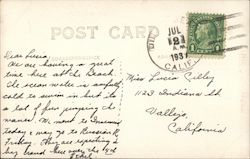 POST CARD
JUL
21
193
CALIF.
Dear Lucia,
We are having a great
time here at the Beach.
The ocean water is awfully
cold to swim in but its
a lot of fun jumping the
waves. We went to
today & may go to Russian R.
Friday. They are expecting a
big crowd here over the
Miss Lucia
1123 Indiana St.
Vallejo,
California